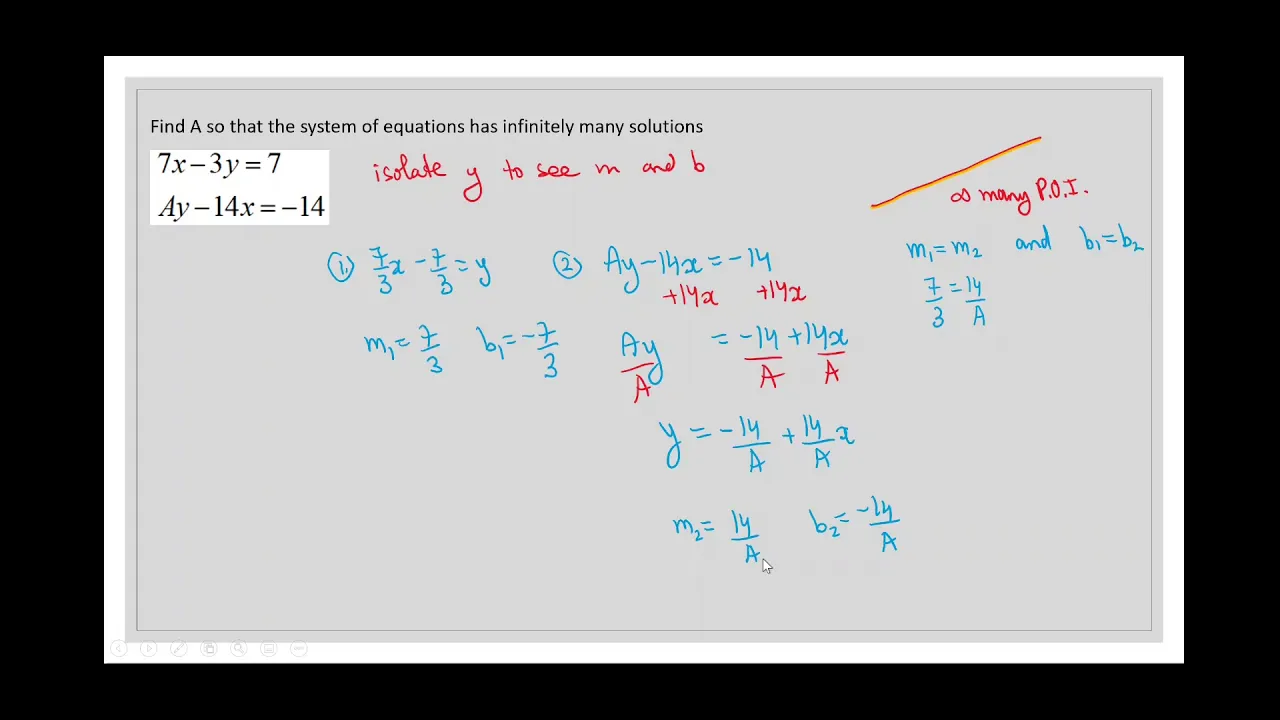 Find A so that the system of equations has infinitely many solutions
7x − 3y = 7
Ay − 14x = −14
isolate y to see m and b
∞ many P.O.I.
m₁ = m₂ and b₁ = b₂
7/3 = 14/A
① 7/3 x − 7/3 = y
m₁ = 7/3 b₁ = −7/3
② Ay − 14x = −14
+14x +14x
Ay/A = −14/A + 14x/A
y = −14/A + 14/A x
m₂ = 14/A b₂ = −14/A